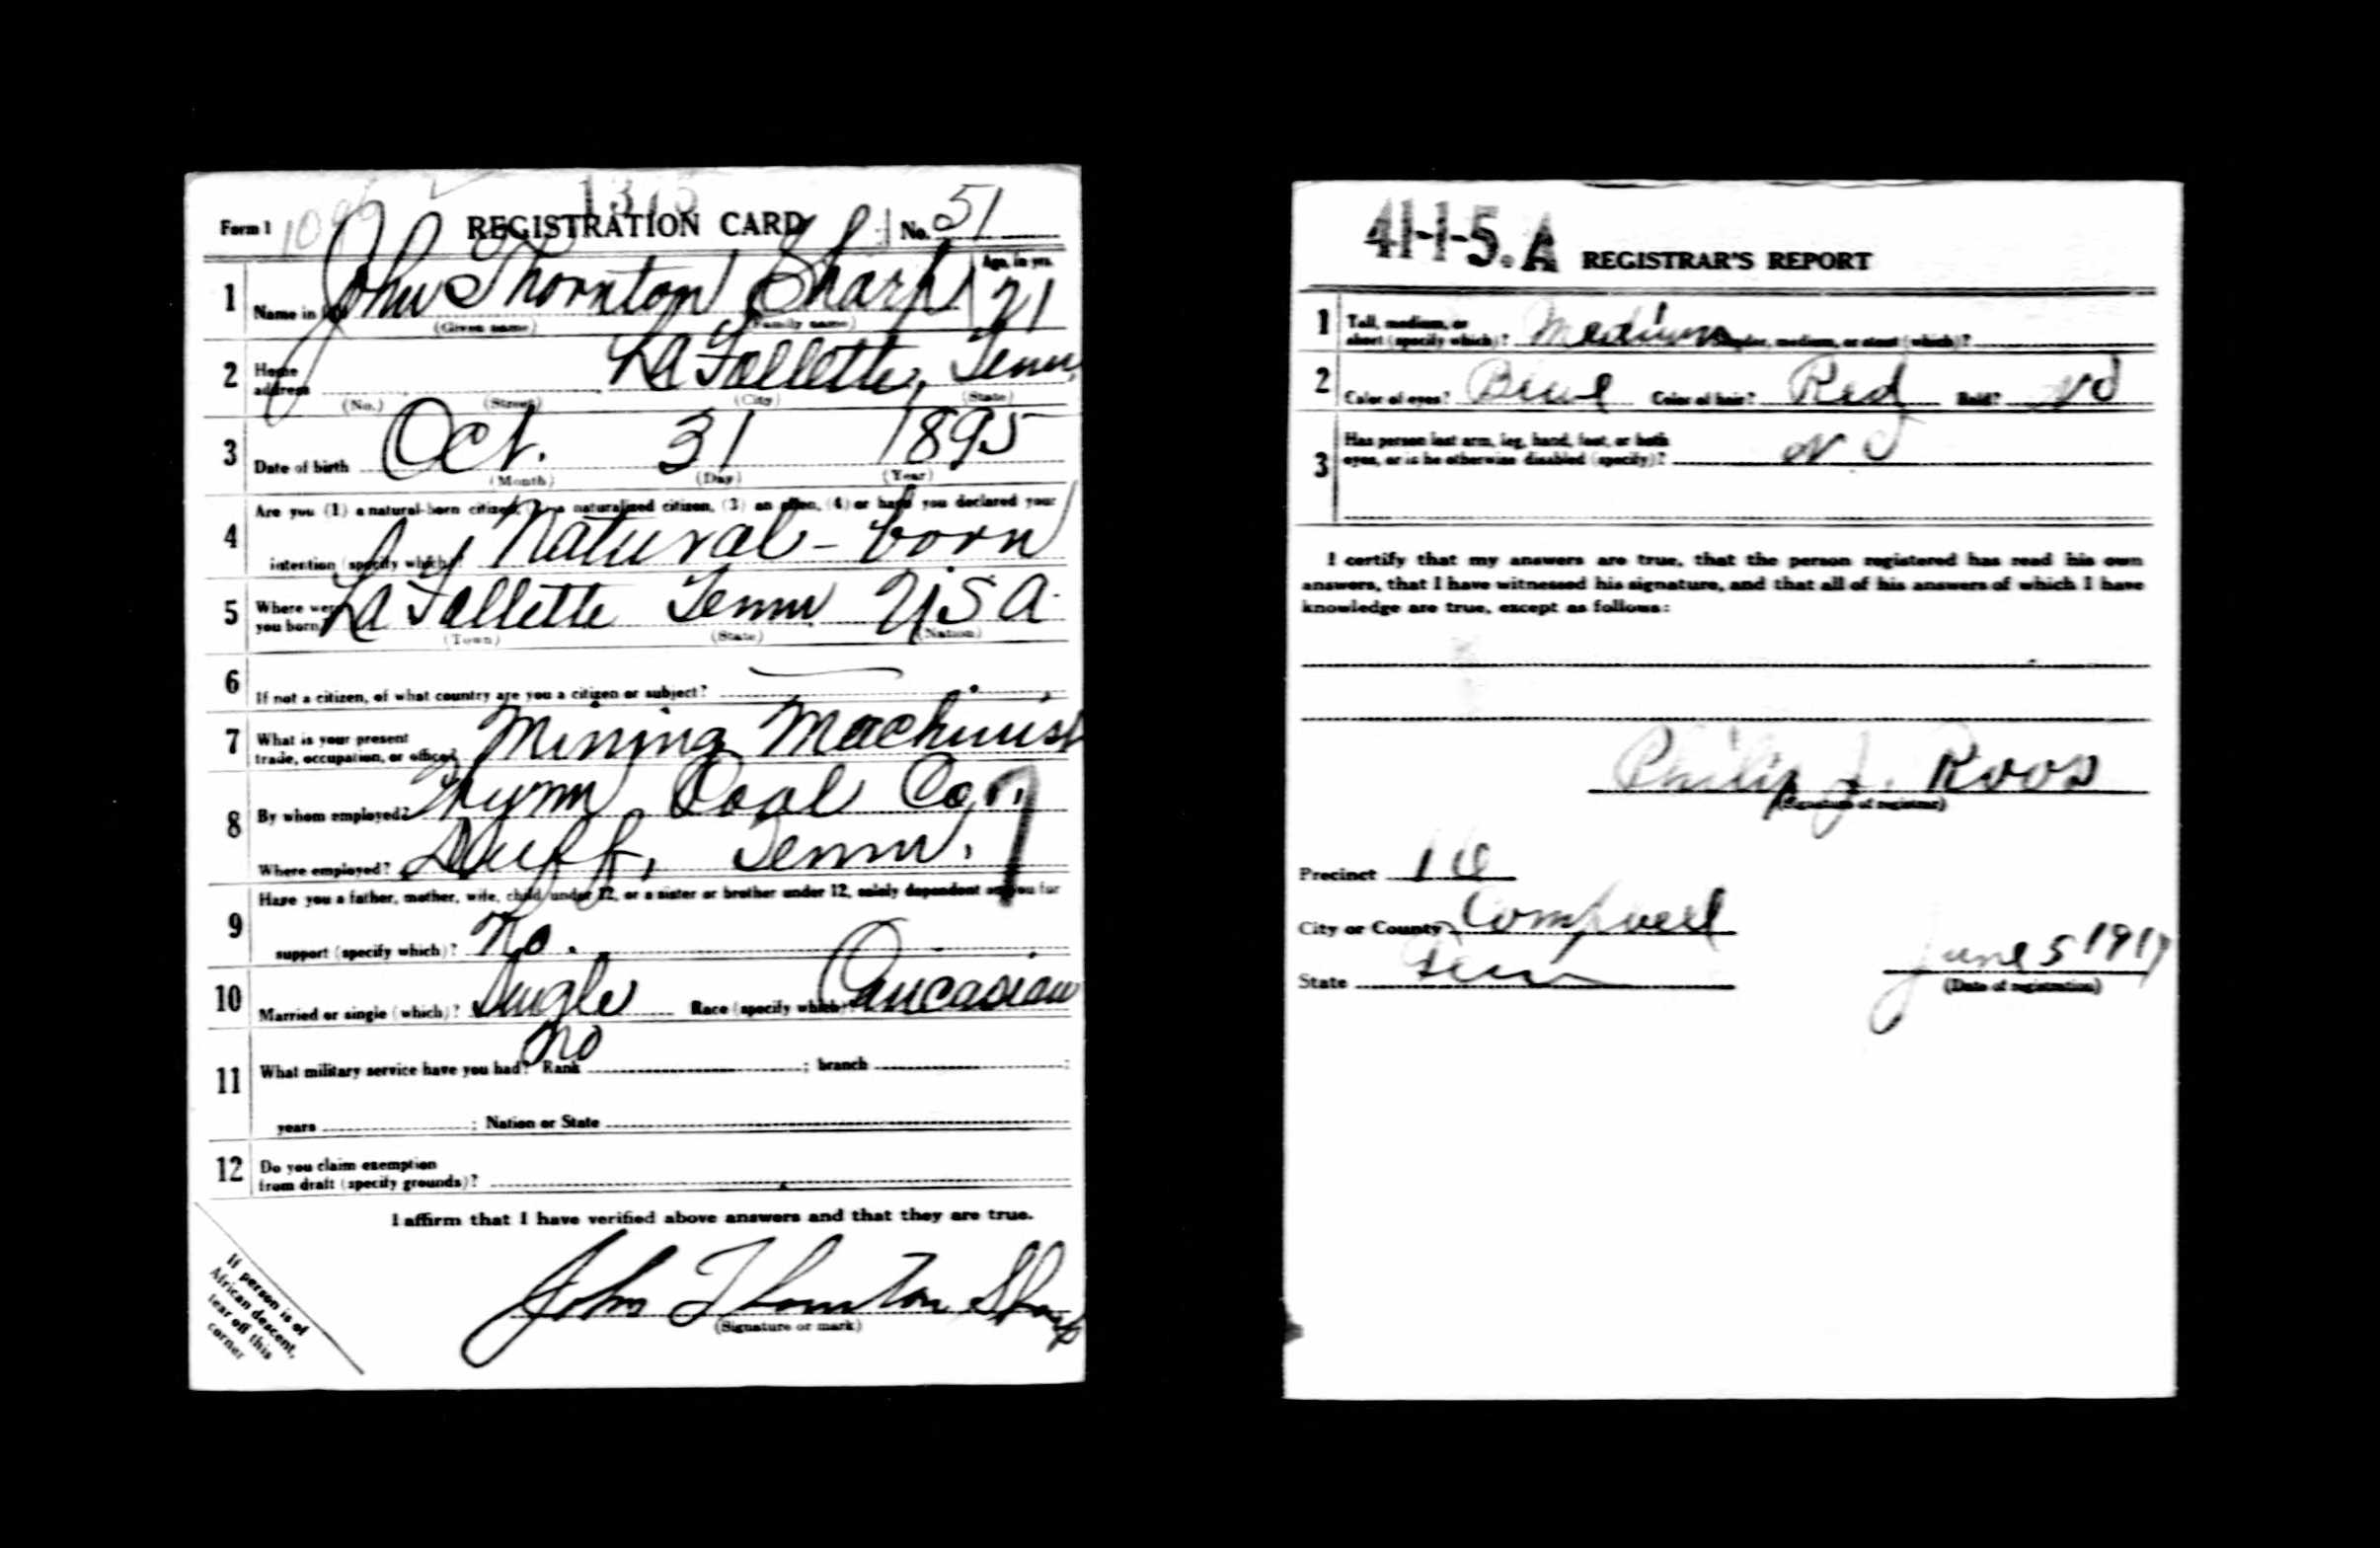 1313
Form 1 REGISTRATION CARD No. 51
1 Name in full John Thornton Sharp Age, in yrs. 21
(Given name) (Family name)
2 Home address La Follette, Tenn.
(No.) (Street) (City) (State)
3 Date of birth Oct. 31 1895
(Month) (Day) (Year)
4 Are you (1) a natural-born citizen, (2) a naturalized citizen, (3) an alien, (4) or have you declared your
intention (specify which)? Natural-born
5 Where were you born? La Follette Tenn USA.
(Town) (State) (Nation)
6 If not a citizen, of what country are you a citizen or subject?
7 What is your present
trade, occupation, or office? Mining Machinist
8 By whom employed? Wynn Coal Co.
Where employed? Duff, Tenn.
9 Have you a father, mother, wife, child under 12, or a sister or brother under 12, solely dependent on you for
support (specify which)? No.
10 Married or single (which)? Single Race (specify which)? Caucasian
11 What military service have you had? Rank no ; branch ;
years ; Nation or State
12 Do you claim exemption
from draft (specify grounds)?
I affirm that I have verified above answers and that they are true.
John Thornton Sharp
(Signature or mark)
If person is of
African descent,
tear off this
corner
41-1-5. A REGISTRAR'S REPORT
1 Tall, medium, or
short (specify which)? Medium Slender, medium, or stout (which)?
2 Color of eyes? Blue Color of hair? Red Bald? No
3 Has person lost arm, leg, hand, foot, or both
eyes, or is he otherwise disabled (specify)? No
I certify that my answers are true, that the person registered has read his own
answers, that I have witnessed his signature, and that all of his answers of which I have
knowledge are true, except as follows:
Philip J. Roos
(Signature of registrar)
Precinct 16
City or County Campbell
State Tenn
June 5 1917
(Date of registration)